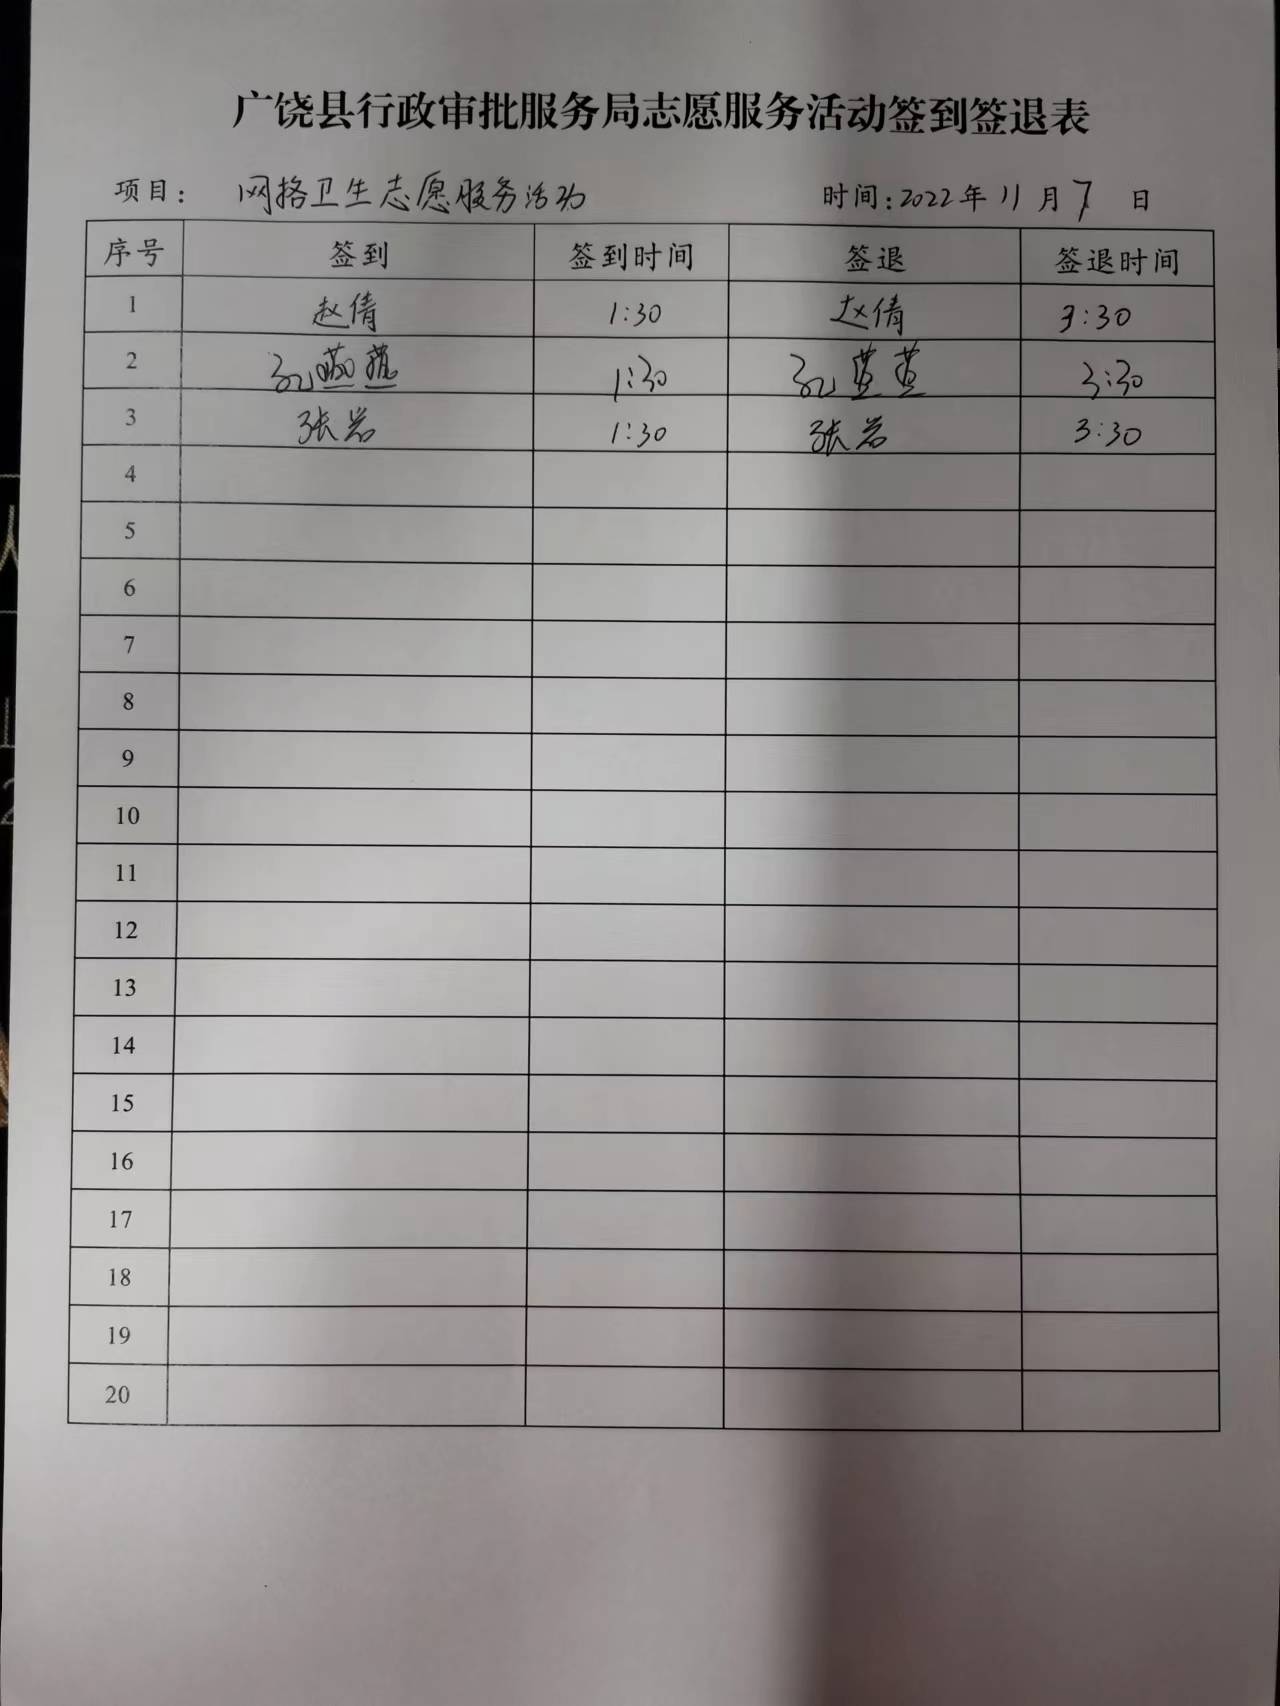 广饶县行政审批服务局志愿服务活动签到签退表
项目： 网格卫生志愿服务活动 时间：2022年 11 月 7 日
序号 签到 签到时间 签退 签退时间
1 赵倩 1:30 赵倩 3:30
2 孔 1:30 孔 3:30
3 张岩 1:30 张岩 3:30
4
5
6
7
8
9
10
11
12
13
14
15
16
17
18
19
20